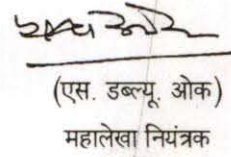 (एस. डब्ल्यू. ओक)
महालेखा नियंत्रक